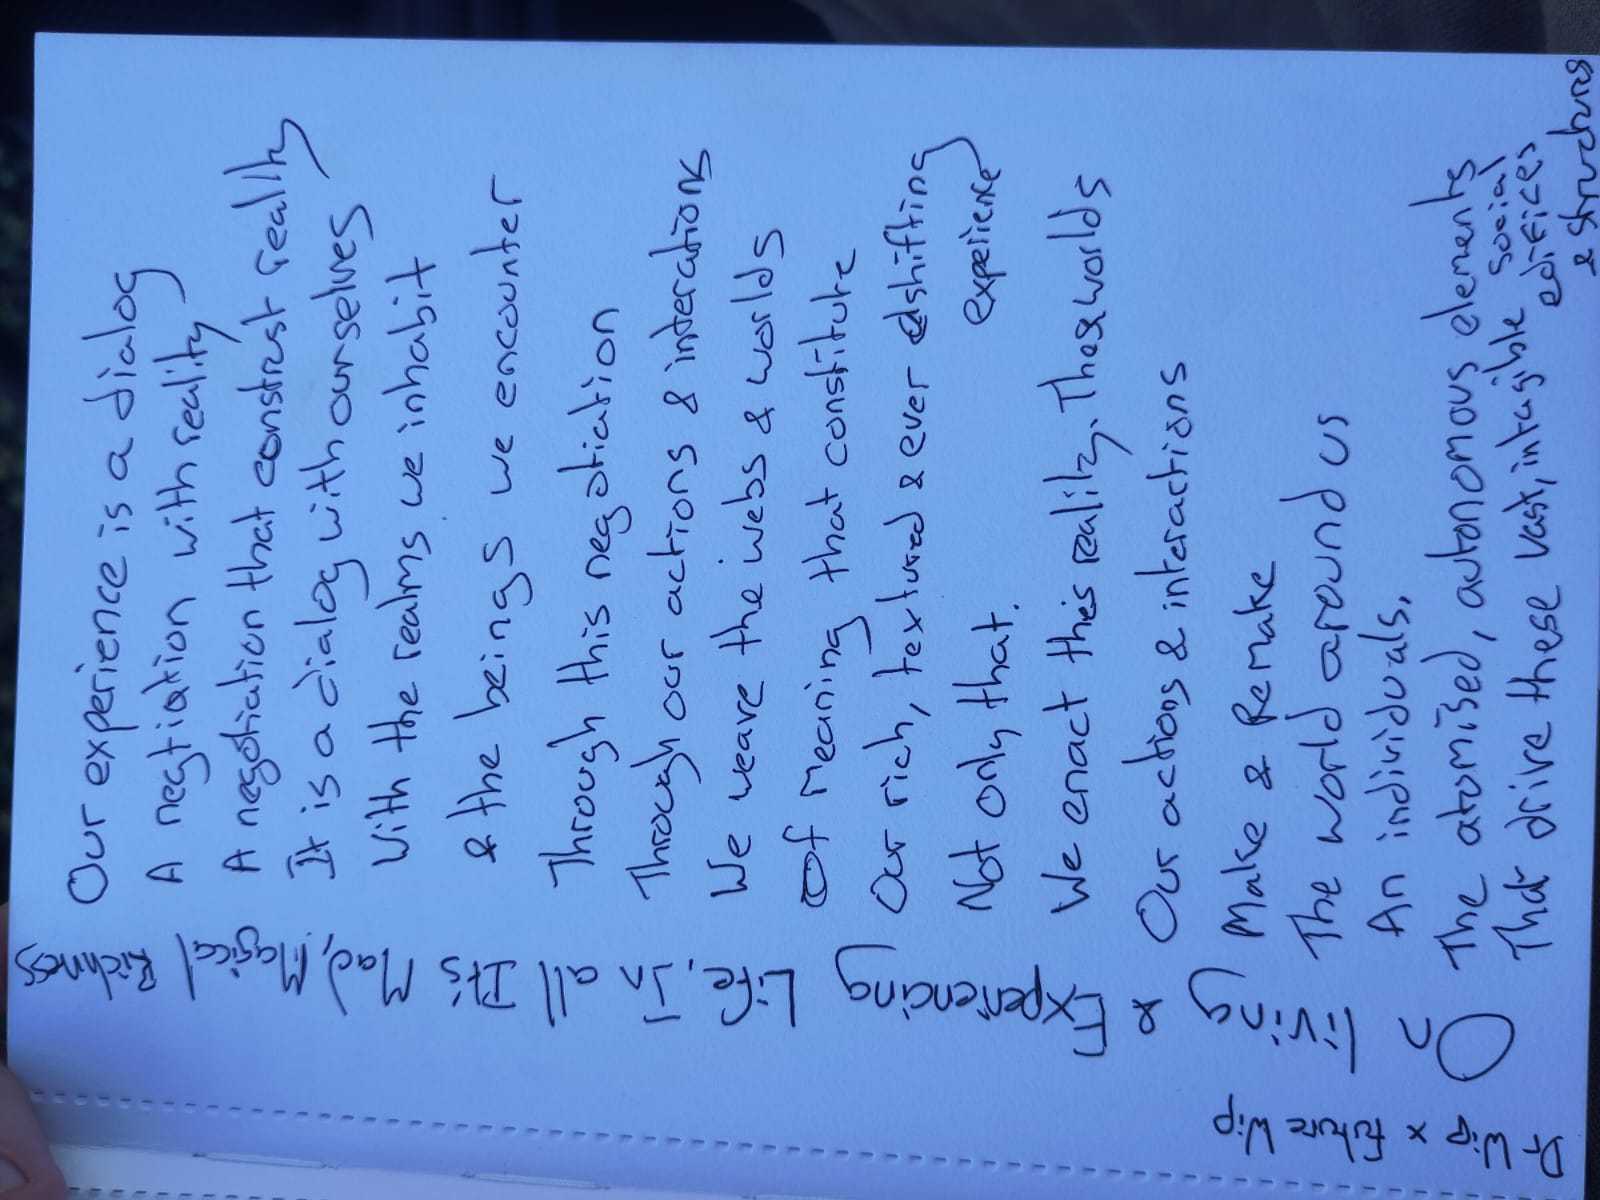 Dr Wip x Future Wip
On
living
& Experiencing
Life, In all It's Mad, Magical Richness
Our experience is a dialog
A negtiation with reality
A negotiation that construst really
It is a dialog with ourselves
With the realms we inhabit
& the beings we encounter
Through this negotiation
Through our actions & interations
We weave the webs & worlds
Of meaning that constitute
Our rich, textured & ever shifting
experience
Not only that.
We enact this reality. These worlds
Our actions & interactions
Make & Remake
The world around us
An individuals.
The atomised, autonomous elements
That drive these vast, intagible social
edifices
& structures